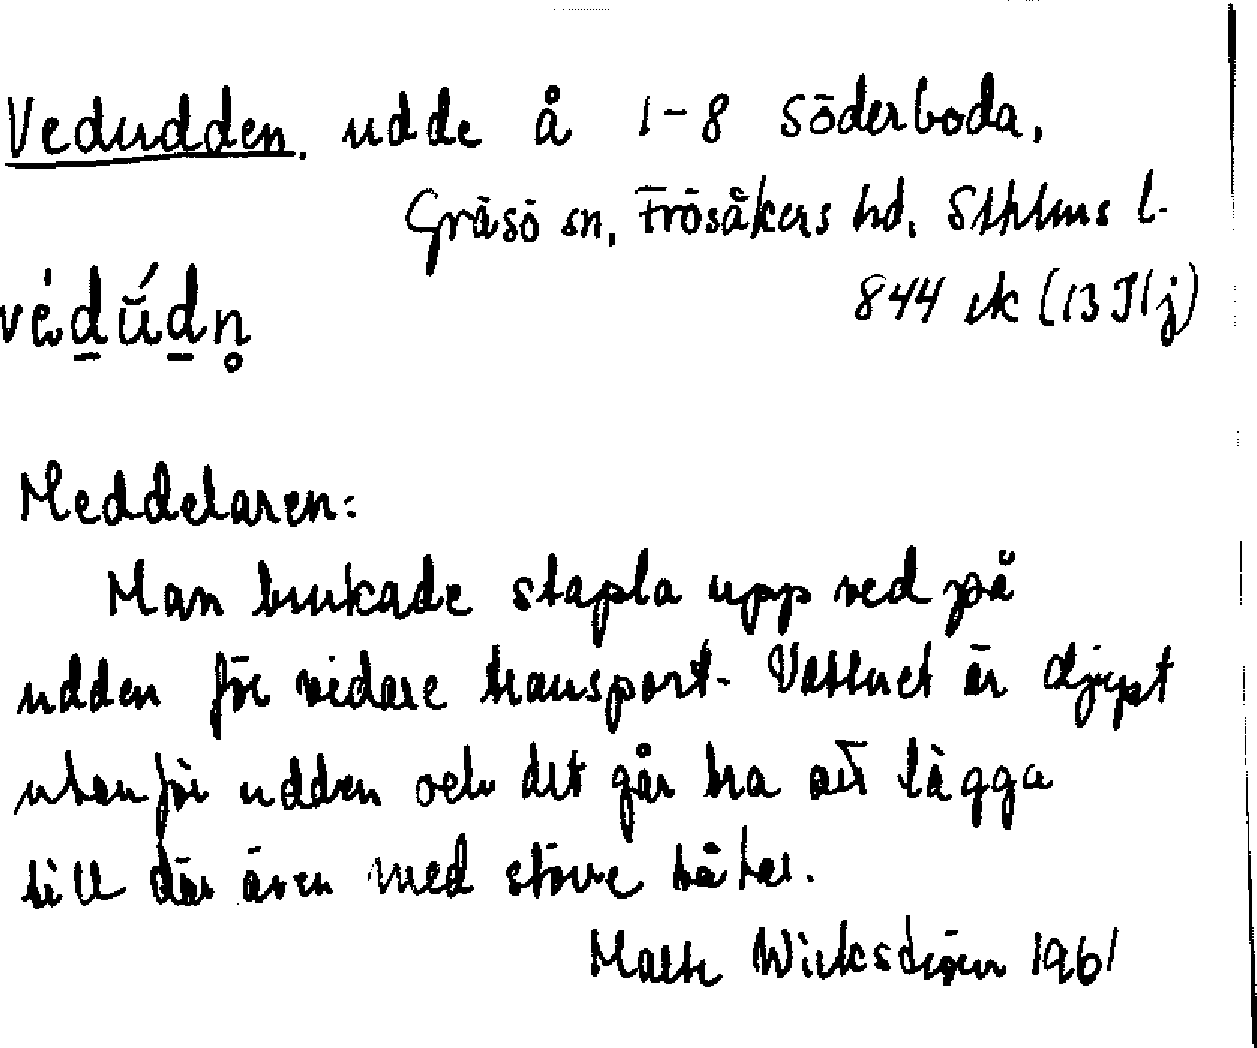 Vedudden, udde å 1-8 Söderboda,
Gräsö sn, Frösåkers hd, Sthlms l.
844 ek (13 I 1 j)
vèdúdn̥
Meddelaren:
Man brukade stapla upp ved på
udden för vidare transport. Vattnet är djupt
utanför udden och det går bra att lägga
till där även med större båtar.
1961